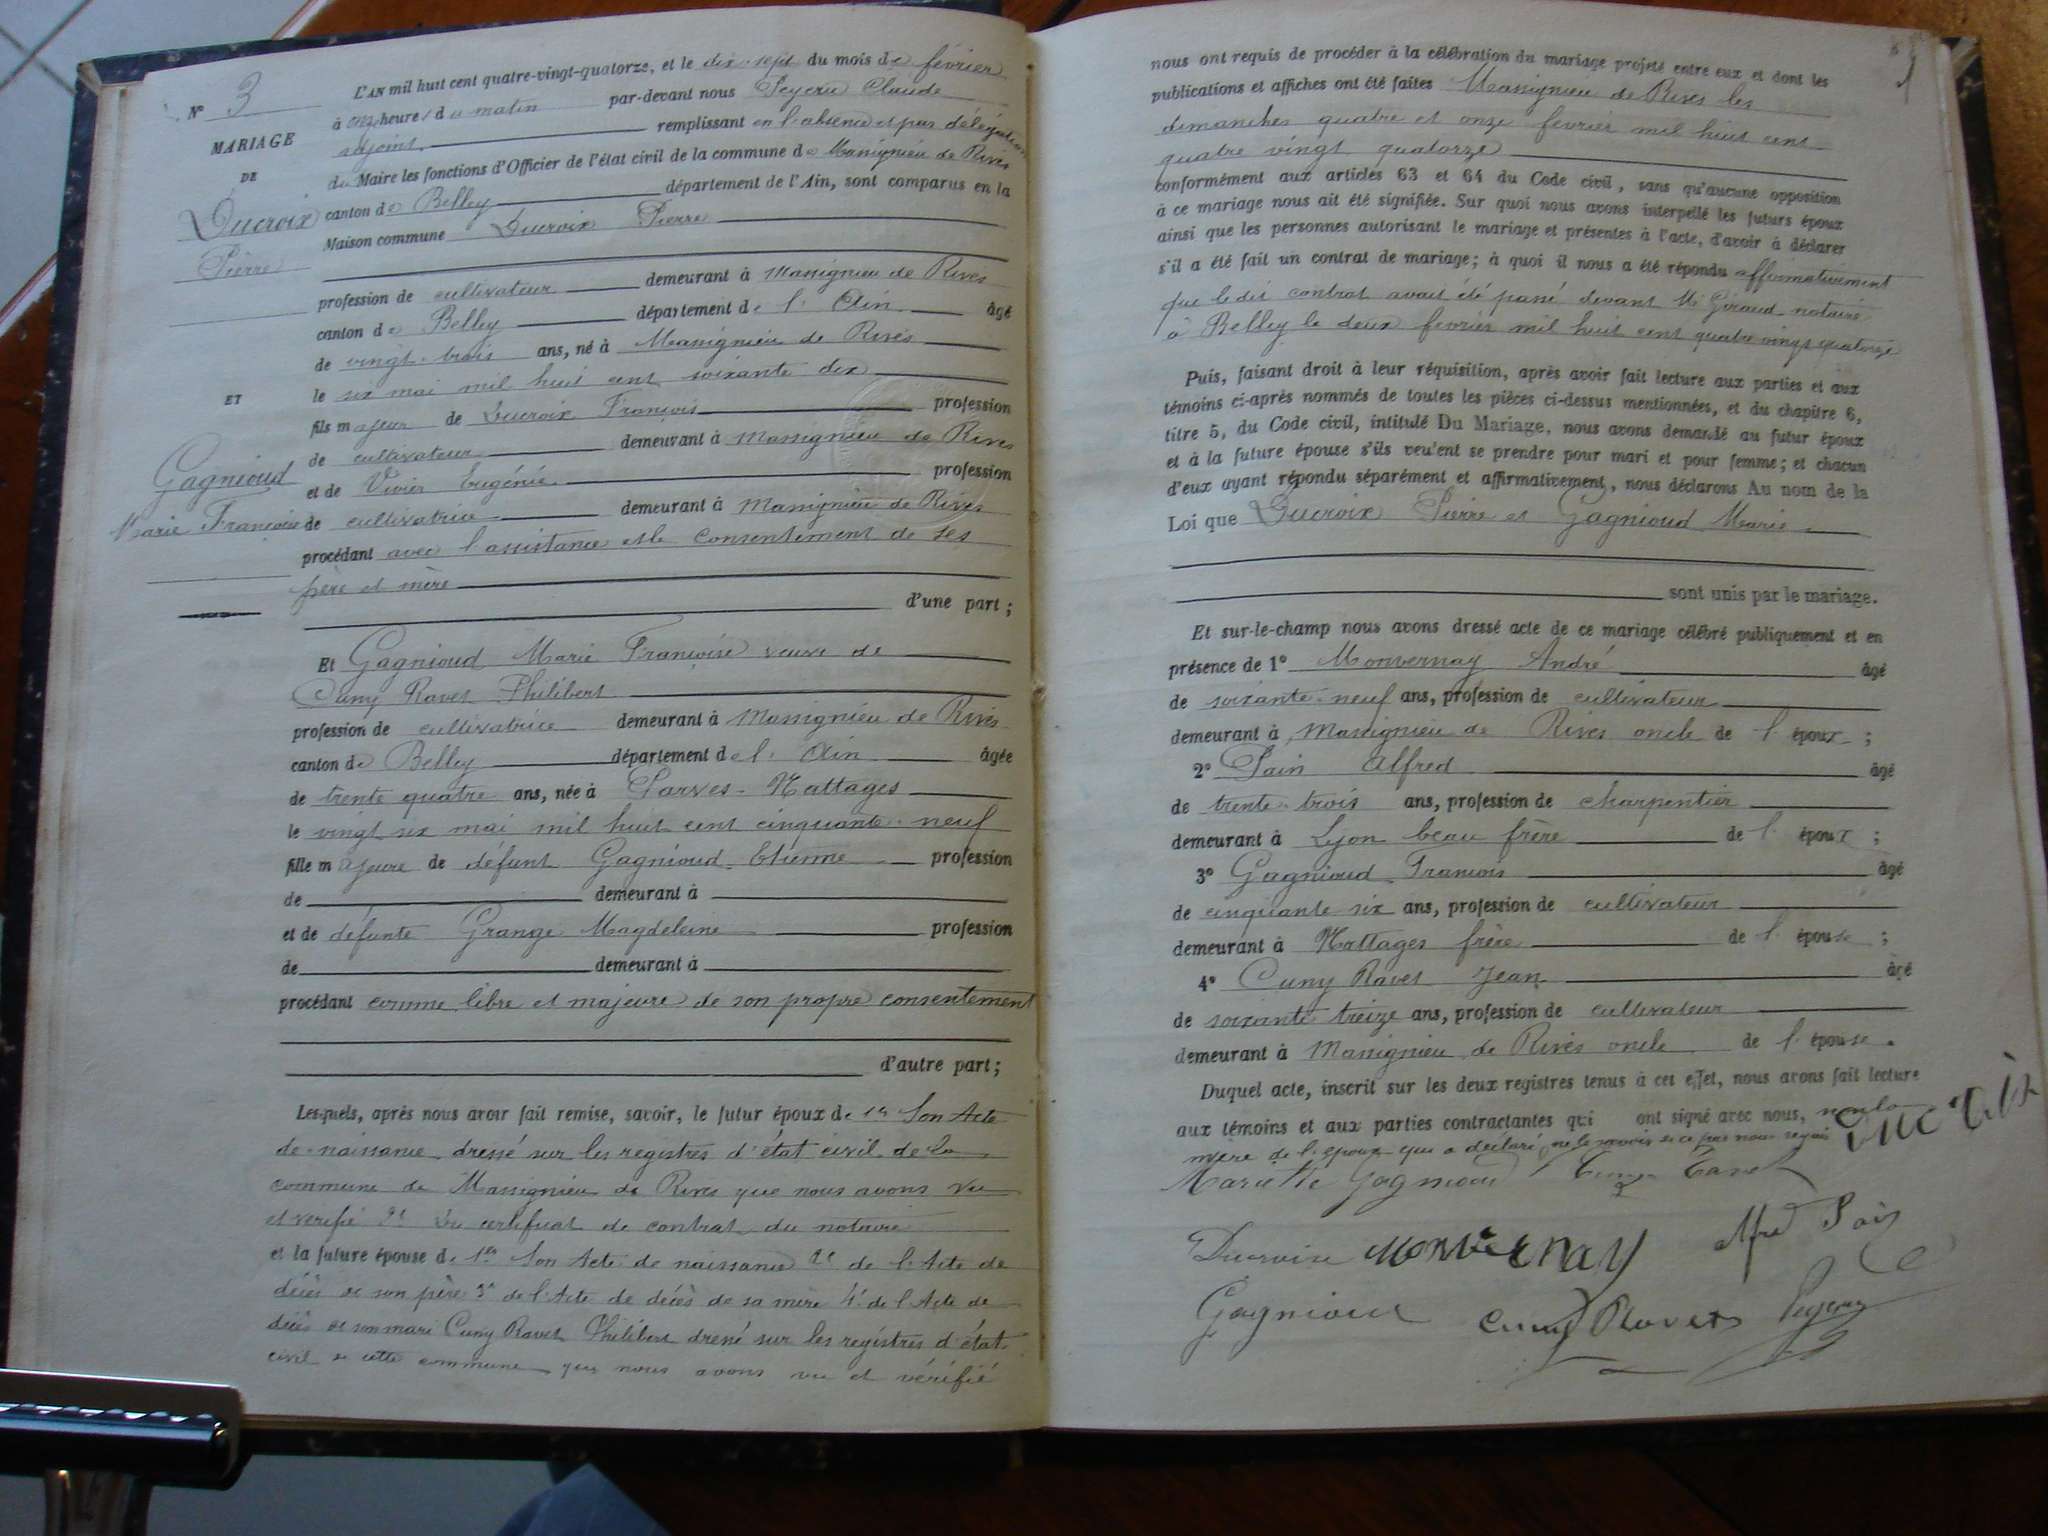 L'AN mil huit cent quatre-vingt-quatorze, et le dix-sept du mois de février
N° 3
à onze heures du matin par-devant nous Peyeru Claude
adjoint remplissant en l'absence et par délégation
MARIAGE
du Maire les fonctions d'Officier de l'état civil de la commune de Massignieu de Rives
DE
canton de Belley département de l'Ain, sont comparus en la
Ducroix
Maison commune Ducroix Pierre
Pierre
profession de cultivateur demeurant à Massignieu de Rives
canton de Belley département de l'Ain âgé
de vingt-trois ans, né à Massignieu de Rives
le six mai mil huit cent soixante dix
ET
fils majeur de Ducroix François profession
de cultivateur demeurant à Massignieu de Rives
Gagnioud
et de Vivier Eugénie profession
Marie Françoise
de cultivatrice demeurant à Massignieu de Rives
procédant avec l'assistance et le consentement de ses
père et mère
d'une part ;
Et Gagnioud Marie Françoise veuve de
Cuny Ravet Philibert
profession de cultivatrice demeurant à Massignieu de Rives
canton de Belley département de l'Ain âgée
de trente quatre ans, née à Parves-Nattages
le vingt six mai mil huit cent cinquante-neuf
fille majeure de défunt Gagnioud Etienne profession
de demeurant à
et de défunte Grange Magdeleine profession
de demeurant à
procédant comme libre et majeure de son propre consentement
d'autre part ;
Lesquels, après nous avoir fait remise, savoir, le futur époux de 1° Son Acte
de naissance dressé sur les registres d'état civil de la
commune de Massignieu de Rives que nous avons vu
et vérifié 2° Du certificat de contrat du notaire
et la future épouse de 1° Son Acte de naissance 2° de l'Acte de
décès de son père 3° de l'Acte de décès de sa mère 4° de l'Acte de
décès de son mari Cuny Ravet Philibert dressé sur les registres d'état
civil de cette commune que nous avons vu et vérifié
nous ont requis de procéder à la célébration du mariage projeté entre eux et dont les
publications et affiches ont été faites Massignieu de Rives les
dimanches quatre et onze fevrier mil huit cent
quatre vingt quatorze
conformément aux articles 63 et 64 du Code civil, sans qu'aucune opposition
à ce mariage nous ait été signifiée. Sur quoi nous avons interpellé les futurs époux
ainsi que les personnes autorisant le mariage et présentes à l'acte, d'avoir à déclarer
s'il a été fait un contrat de mariage ; à quoi il nous a été répondu affirmativement
que le dit contrat avait été passé devant Me Giraud notaire
à Belley le deux fevrier mil huit cent quatre vingt quatorze
Puis, faisant droit à leur réquisition, après avoir fait lecture aux parties et aux
témoins ci-après nommés de toutes les pièces ci-dessus mentionnées, et du chapitre 6,
titre 5, du Code civil, intitulé Du Mariage, nous avons demandé au futur époux
et à la future épouse s'ils veulent se prendre pour mari et pour femme ; et chacun
d'eux ayant répondu séparément et affirmativement, nous déclarons Au nom de la
Loi que Ducroix Pierre et Gagnioud Marie
sont unis par le mariage.
Et sur-le-champ nous avons dressé acte de ce mariage célébré publiquement et en
présence de 1° Monvernay André âgé
de soixante-neuf ans, profession de cultivateur
demeurant à Massignieu de Rives oncle de l'époux ;
2° Pain Alfred âgé
de trente-trois ans, profession de charpentier
demeurant à Lyon beau frère de l'époux ;
3° Gagnioud François âgé
de cinquante six ans, profession de cultivateur
demeurant à Nattages frère de l'épouse ;
4° Cuny Ravet Jean âgé
de soixante treize ans, profession de cultivateur
demeurant à Massignieu de Rives oncle de l'épouse.
Duquel acte, inscrit sur les deux registres tenus à cet effet, nous avons fait lecture
aux témoins et aux parties contractantes qui ont signé avec nous, non la
mère de l'époux qui a déclaré ne le savoir de ce par nous requis
Ducroix
Mariette Gagnioud
Ducroix Monvernay Alfred Pain
Gagnioud Cuny Ravet Peyeru